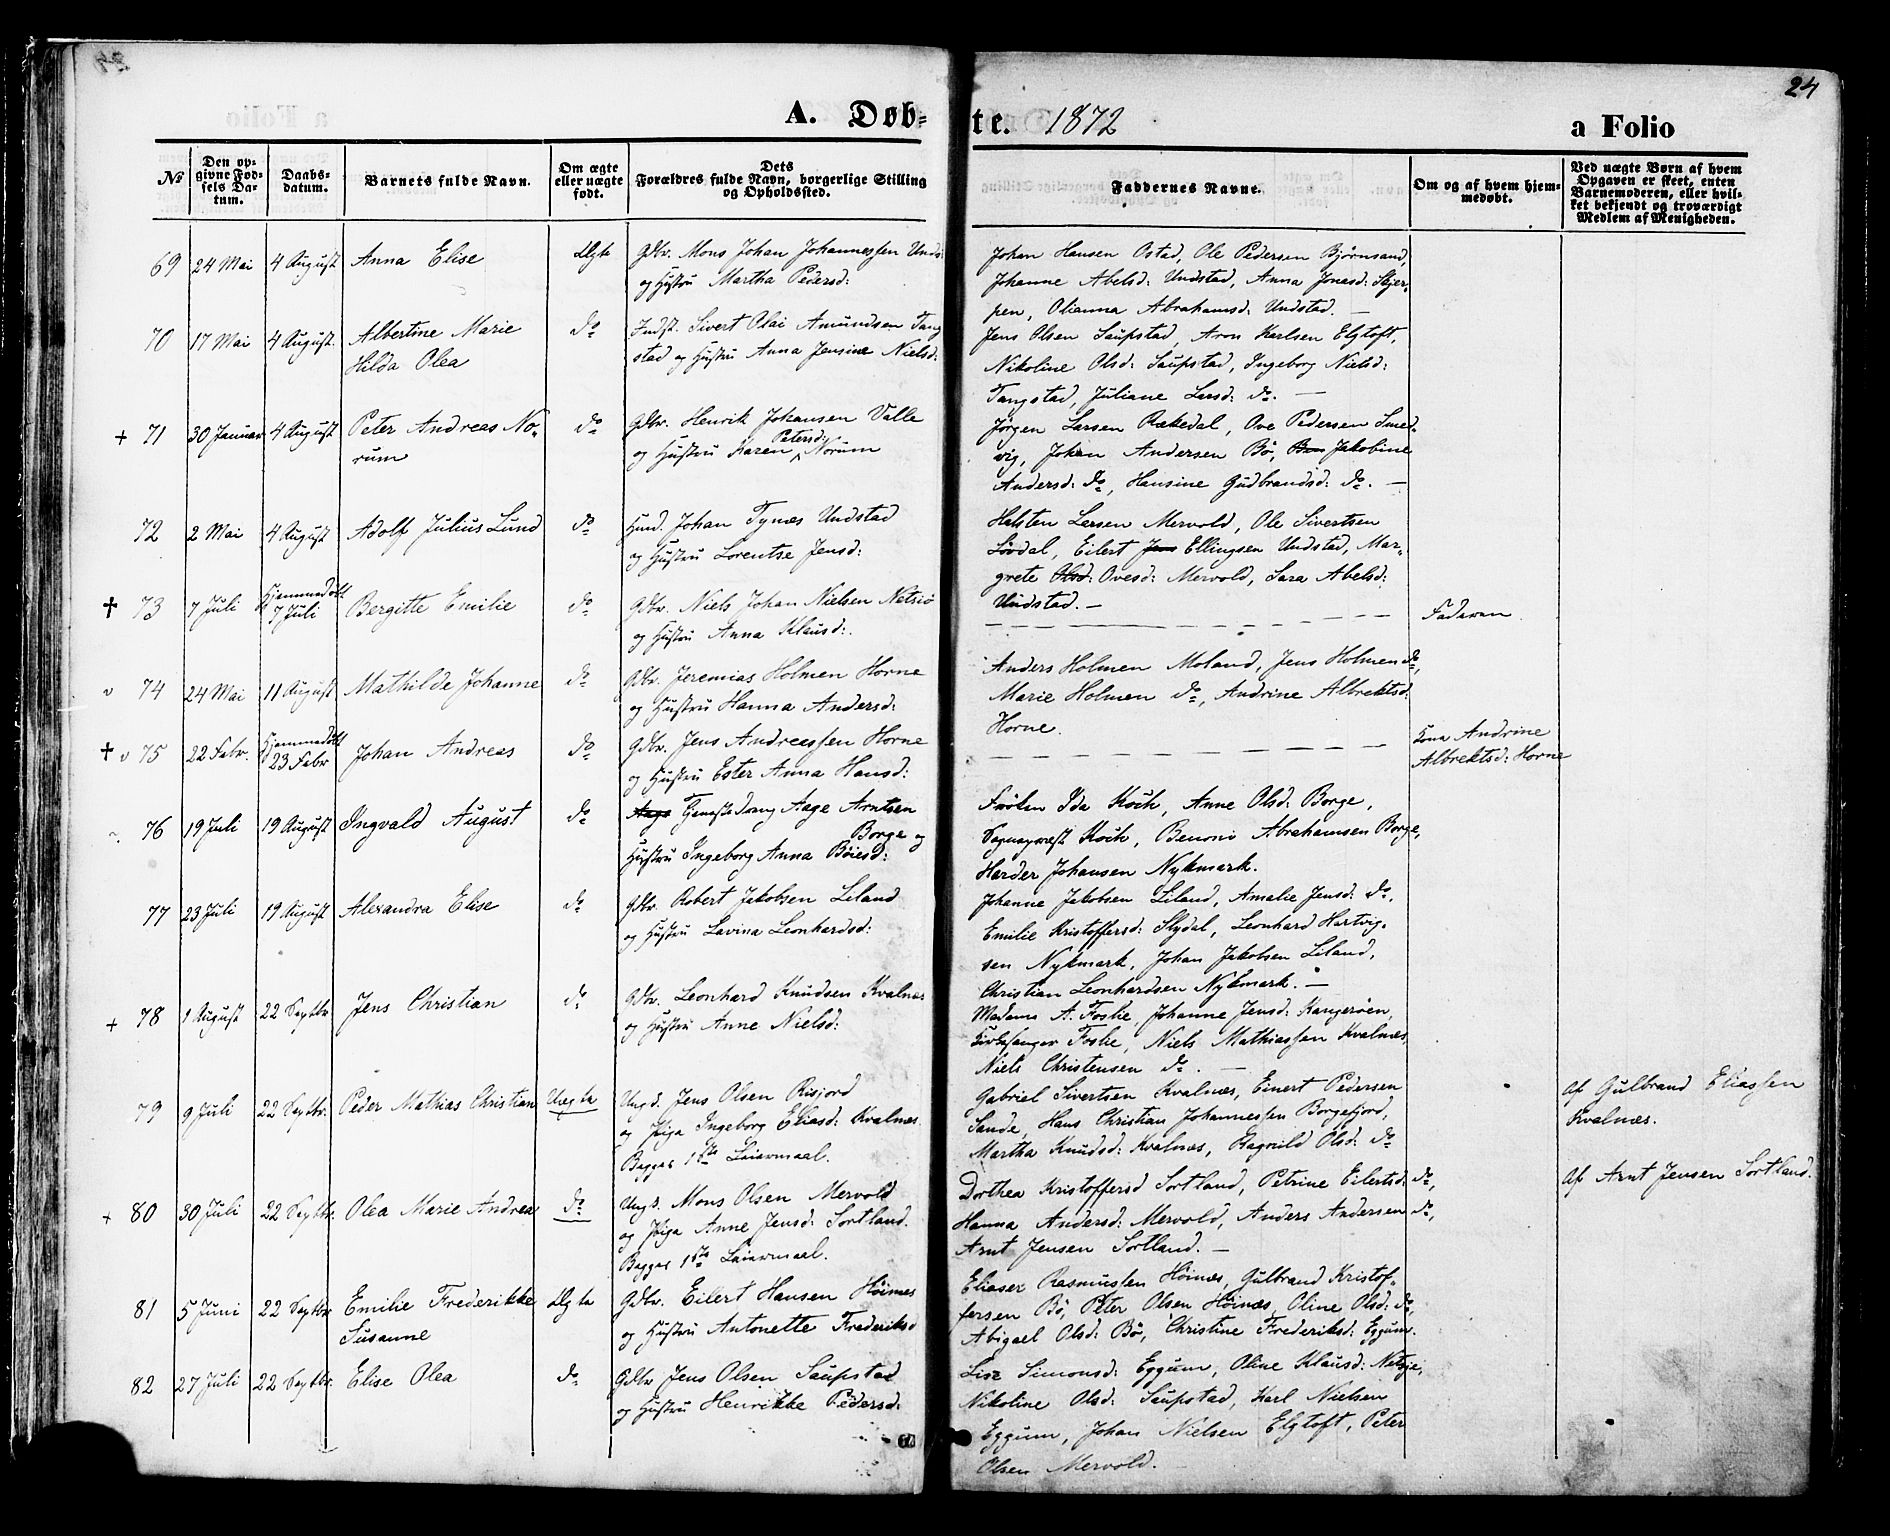 24
A. Døb-
te. 1872
a Folio
№
Den op-
givne Fød-
sels Da-
tum.
Daabs-
datum.
Barnets fulde Navn.
Om ægte
eller uægte
født.
Dets
Forældres fulde Navn, borgerlige Stilling
og Opholdssted.
Faddernes Navne.
Om og af hvem hjem-
medøbt.
Ved uægte Børn af hvem
Opgaven er skeet, enten
Barnemoderen, eller hvil-
ket bekjendt og troværdigt
Medlem af Menigheden.
69 24 Mai 4 August Anna Elise Ægte Gdbr. Mons Johan Johannessen Unds:
og Hustru Martha Pedersd:
Johan Hansen Ostad, Ole Pedersen Bjørnsand,
Johanne Abelsd: Undstad, Anna Jonasd: Skjer-
pen, Olianna Abrahamsd: Undstad. —
70 17 Mai 4 August. Albertine Marie do Indst. Sivert Olai Amundsen Tang
Hilda Olea stad og Hustru Anna Jensine Nielsd:
Jens Olsen Saupstad, Aron Karlsen Elgtoft,
Nikoline Olsd: Saupstad, Ingeborg Nielsd:
Tangstad, Juliane Larsd: do. —
+ 71 30 Januar 4 August Peter Andreas No- do Gdbr. Henrik Johansen Valle
rum og Hustru Karen Petersd: Norum
Jørgen Larsen Rækedal, Ove Pedersen Smed-
vig, Johan Andersen Bø, Jakobine
Andersd: do, Hansine Gudbrandsd: do. —
72 2 Mai 4 August Adolf Julius Lund do Husd. Johan Tynæs Undstad
og Hustru Lorentse Jensd:
Halsten Larsen Mervold, Ole Sivertsen
Løvdal, Eilert Jens Ellingsen Undstad, Mar-
grete Olsd: Ovesd: Mervold, Sara Abelsd:
Undstad. —
✝ 73 7 Juli Hjemmedøbt
7 Juli Bergitte Emilie do Gdbr. Niels Johan Nielsen Netsiø
og Hustru Anna Klausd:
— — — — — — — — Faderen.
v 74 24 Mai 11 August Mathilde Johanne do Gdbr. Jeremias Holmen Horne
og Hustru Hanna Andersd:
Anders Holmen Moland, Jens Holmen do,
Marie Holmen do, Andrine Albrektsd:
Horne.
✝ v 75 22 Febr. Hjemmedøbt
23 Febr Johan Andreas do Gdbr. Jens Andreassen Horne
og Hustru Ester Anna Hansd:
— — — — — — — — Kona Andrine
Albrektsd: Horne
76 19 Juli 19 August Ingvald August do Aage Tjenestedreng Aage Arntsen
Borge og
Hustru Ingeborg Anna Bøiesd:
Frøken Ida Koch, Anne Olsd: Borge,
Sognepræst Koch, Benoni Abrahamsen Borge,
Harder Johansen Nykmark.
77 23 Juli 19 August Alexandra Elise do Gdbr. Robert Jakobsen Liland
og Hustru Lavina Leonhardsd:
Johanne Jakobsen Liland, Amalie Jensd: do,
Emilie Kristoffersd: Slydal, Leonhard Hartvig-
sen Nykmark, Johan Jakobsen Liland,
Christian Leonhardsen Nykmark. —
+ 78 1 August 22 Septbr Jens Christian do Gdbr. Leonhard Knudsen Kvalnæs
og Hustru Anne Nielsd:
Madame A. Foslie, Johanne Jensd: Kangerøen,
Kirkesanger Foslie, Niels Mathiassen Kvalnæs,
Niels Christensen do. —
79 9 Juli 22 Septbr. Peder Mathias Christian Uægte Ungd. Jens Olsen Risjord
og Piga Ingeborg Eliasd: Kvalnæs.
Begges 1ste Leiermaal.
Gabriel Sivertsen Kvalnæs, Einert Pedersen
Sande, Hans Christian Johannessen Borgefjord,
Martha Knudsd: Kvalnæs, Ragnild Olsd: do
af Gulbrand Eliassen
Kvalnæs.
+ 80 30 Juli 22 Septbr. Olea Marie Andrea do Ungk. Mons Olsen Mervold
og Piga Anne Jensd: Sortland.
Begges 1ste Leiermaal.
Dorthea Kristoffersd Sortland, Petrine Eilertsd: do,
Hanna Andersd: Mervold, Anders Andersen do,
Arnt Jensen Sortland. —
af Arnt Jensen Sortland.
81 5 Juni 22 Septbr Emilie Frederikke Ægte Gdbr. Eilert Hansen Høinæs
Susanne og Hustru Antonette Frederiksd
Eliaser Rasmussen Høinæs, Gulbrand Kristof-
fersen Bø, Peter Olsen Høinæs, Oline Olsd: do,
Abigael Olsd: Bø, Christine Frederiksd: Eggum.
82 27 Juli 22 Septbr. Elise Olea do Gdbr Jens Olsen Saupstad
og Hustru Henrikke Pedersd:
Lise Simonsd: Eggum, Oline Klausd: Netsje,
Nikoline Olsd: Saupstad, Karl Nielsen
Eggum, Johan Nielsen Elgtoft, Peter
Olsen Mervold.